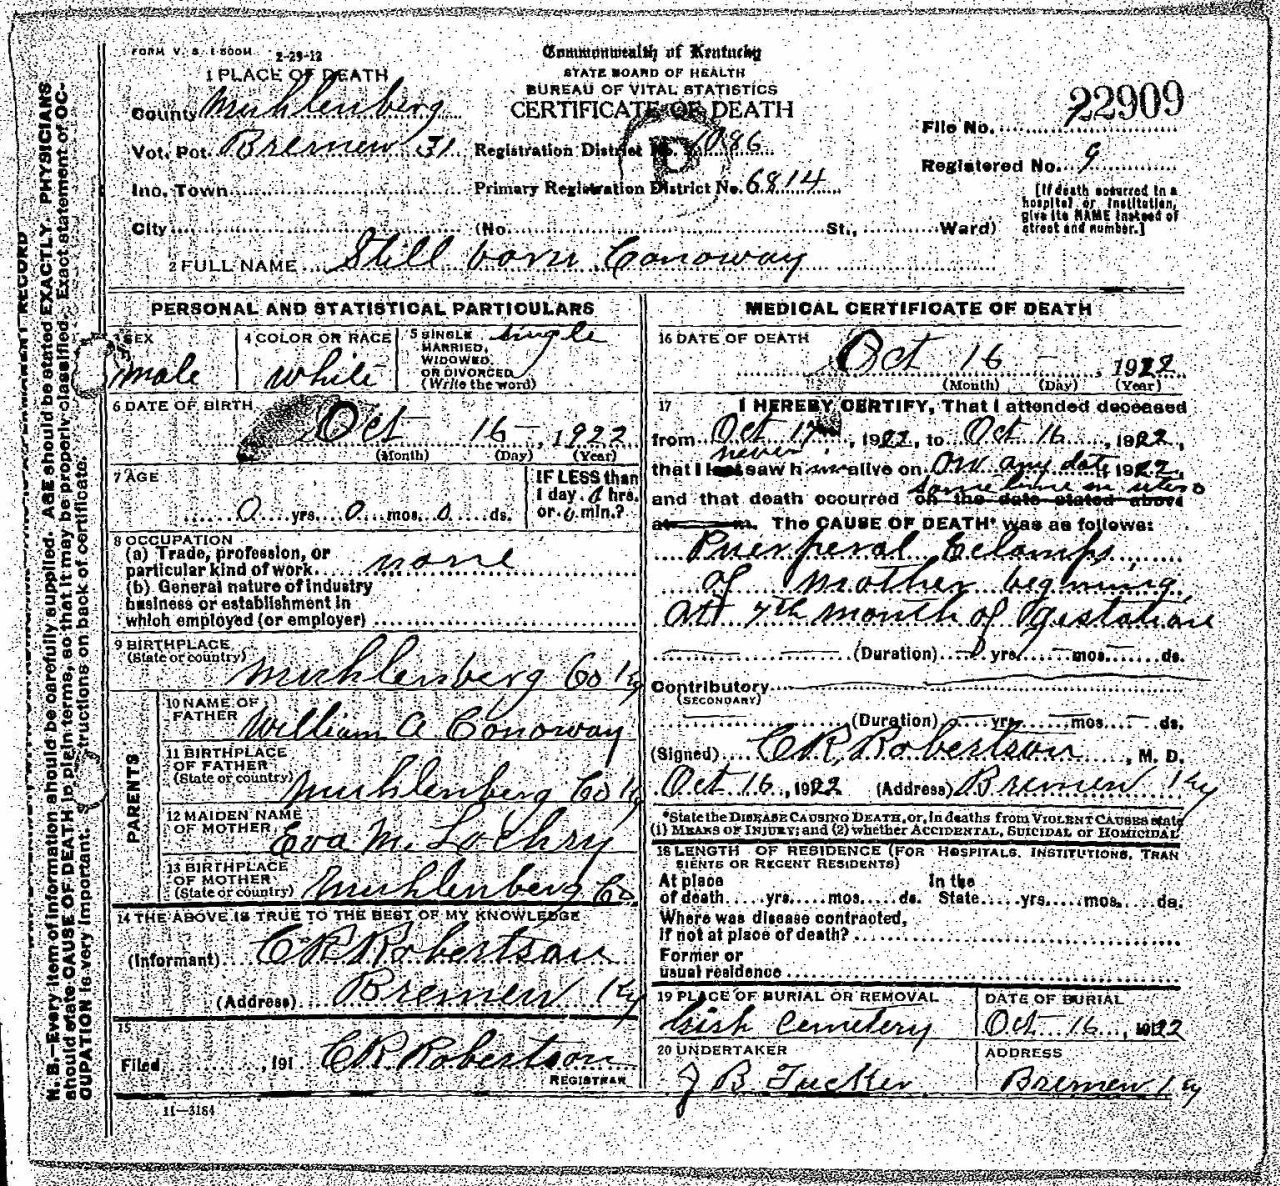 FORM V. S. 1-500M 2-29-12
Commonwealth of Kentucky
STATE BOARD OF HEALTH
BUREAU OF VITAL STATISTICS
CERTIFICATE OF DEATH
1 PLACE OF DEATH
County Muhlenberg
Vot. Pct. Bremen 31
Registration District No. 1086
Inc. Town
Primary Registration District No. 6814
City (No. St., Ward)
File No. 22909
Registered No. 9
[If death occurred in a
hospital or institution,
give its NAME instead of
street and number.]
2 FULL NAME Still born Conoway
PERSONAL AND STATISTICAL PARTICULARS
3 SEX
male
4 COLOR OR RACE
white
5 SINGLE
MARRIED,
WIDOWED
OR DIVORCED
(Write the word)
single
6 DATE OF BIRTH
Oct 16 , 1922
(Month) (Day) (Year)
7 AGE
0 yrs. 0 mos. 0 ds.
IF LESS than
1 day, 0 hrs.
or 0 min.?
8 OCCUPATION
(a) Trade, profession, or
particular kind of work none
(b) General nature of industry
business or establishment in
which employed (or employer)
9 BIRTHPLACE
(State or country)
Muhlenberg Co Ky
PARENTS
10 NAME OF
FATHER
William A Conoway
11 BIRTHPLACE
OF FATHER
(State or country)
Muhlenberg Co Ky
12 MAIDEN NAME
OF MOTHER
Eva M. Lochry
13 BIRTHPLACE
OF MOTHER
(State or country)
Muhlenberg Co.
14 THE ABOVE IS TRUE TO THE BEST OF MY KNOWLEDGE
(Informant) C R Robertson
(Address) Bremen Ky
15
Filed , 191 C R Robertson
REGISTRAR
11—3184
MEDICAL CERTIFICATE OF DEATH
16 DATE OF DEATH
Oct 16 , 1922
(Month) (Day) (Year)
17 I HEREBY CERTIFY, That I attended deceased
from Oct , 1922, to Oct 16 , 1922,
never
that I last saw him alive on on any date 1922,
some time in utero
and that death occurred on the date stated above
at m. The CAUSE OF DEATH* was as follows:
Puerperal Eclamps
of mother begining
at 7th month of gestation
(Duration) yrs. mos. ds.
Contributory
(SECONDARY)
(Duration) yrs. mos. ds.
(Signed) C R Robertson , M. D.
Oct 16, 1922 (Address) Bremen Ky
*State the DISEASE CAUSING DEATH, or, in deaths from VIOLENT CAUSES state
(1) MEANS OF INJURY; and (2) whether ACCIDENTAL, SUICIDAL or HOMICIDAL
18 LENGTH OF RESIDENCE (FOR HOSPITALS, INSTITUTIONS, TRAN
SIENTS OR RECENT RESIDENTS)
At place In the
of death yrs. mos. ds. State yrs. mos. ds.
Where was disease contracted,
if not at place of death?
Former or
usual residence
19 PLACE OF BURIAL OR REMOVAL
Irish Cemetery
DATE OF BURIAL
Oct 16 , 1922
20 UNDERTAKER
J B Tucker
ADDRESS
Bremen Ky
N. B.—Every item of information should be carefully supplied. AGE should be stated EXACTLY. PHYSICIANS
should state CAUSE OF DEATH in plain terms, so that it may be properly classified. Exact statement of OC-
CUPATION is very important. instructions on back of certificate.